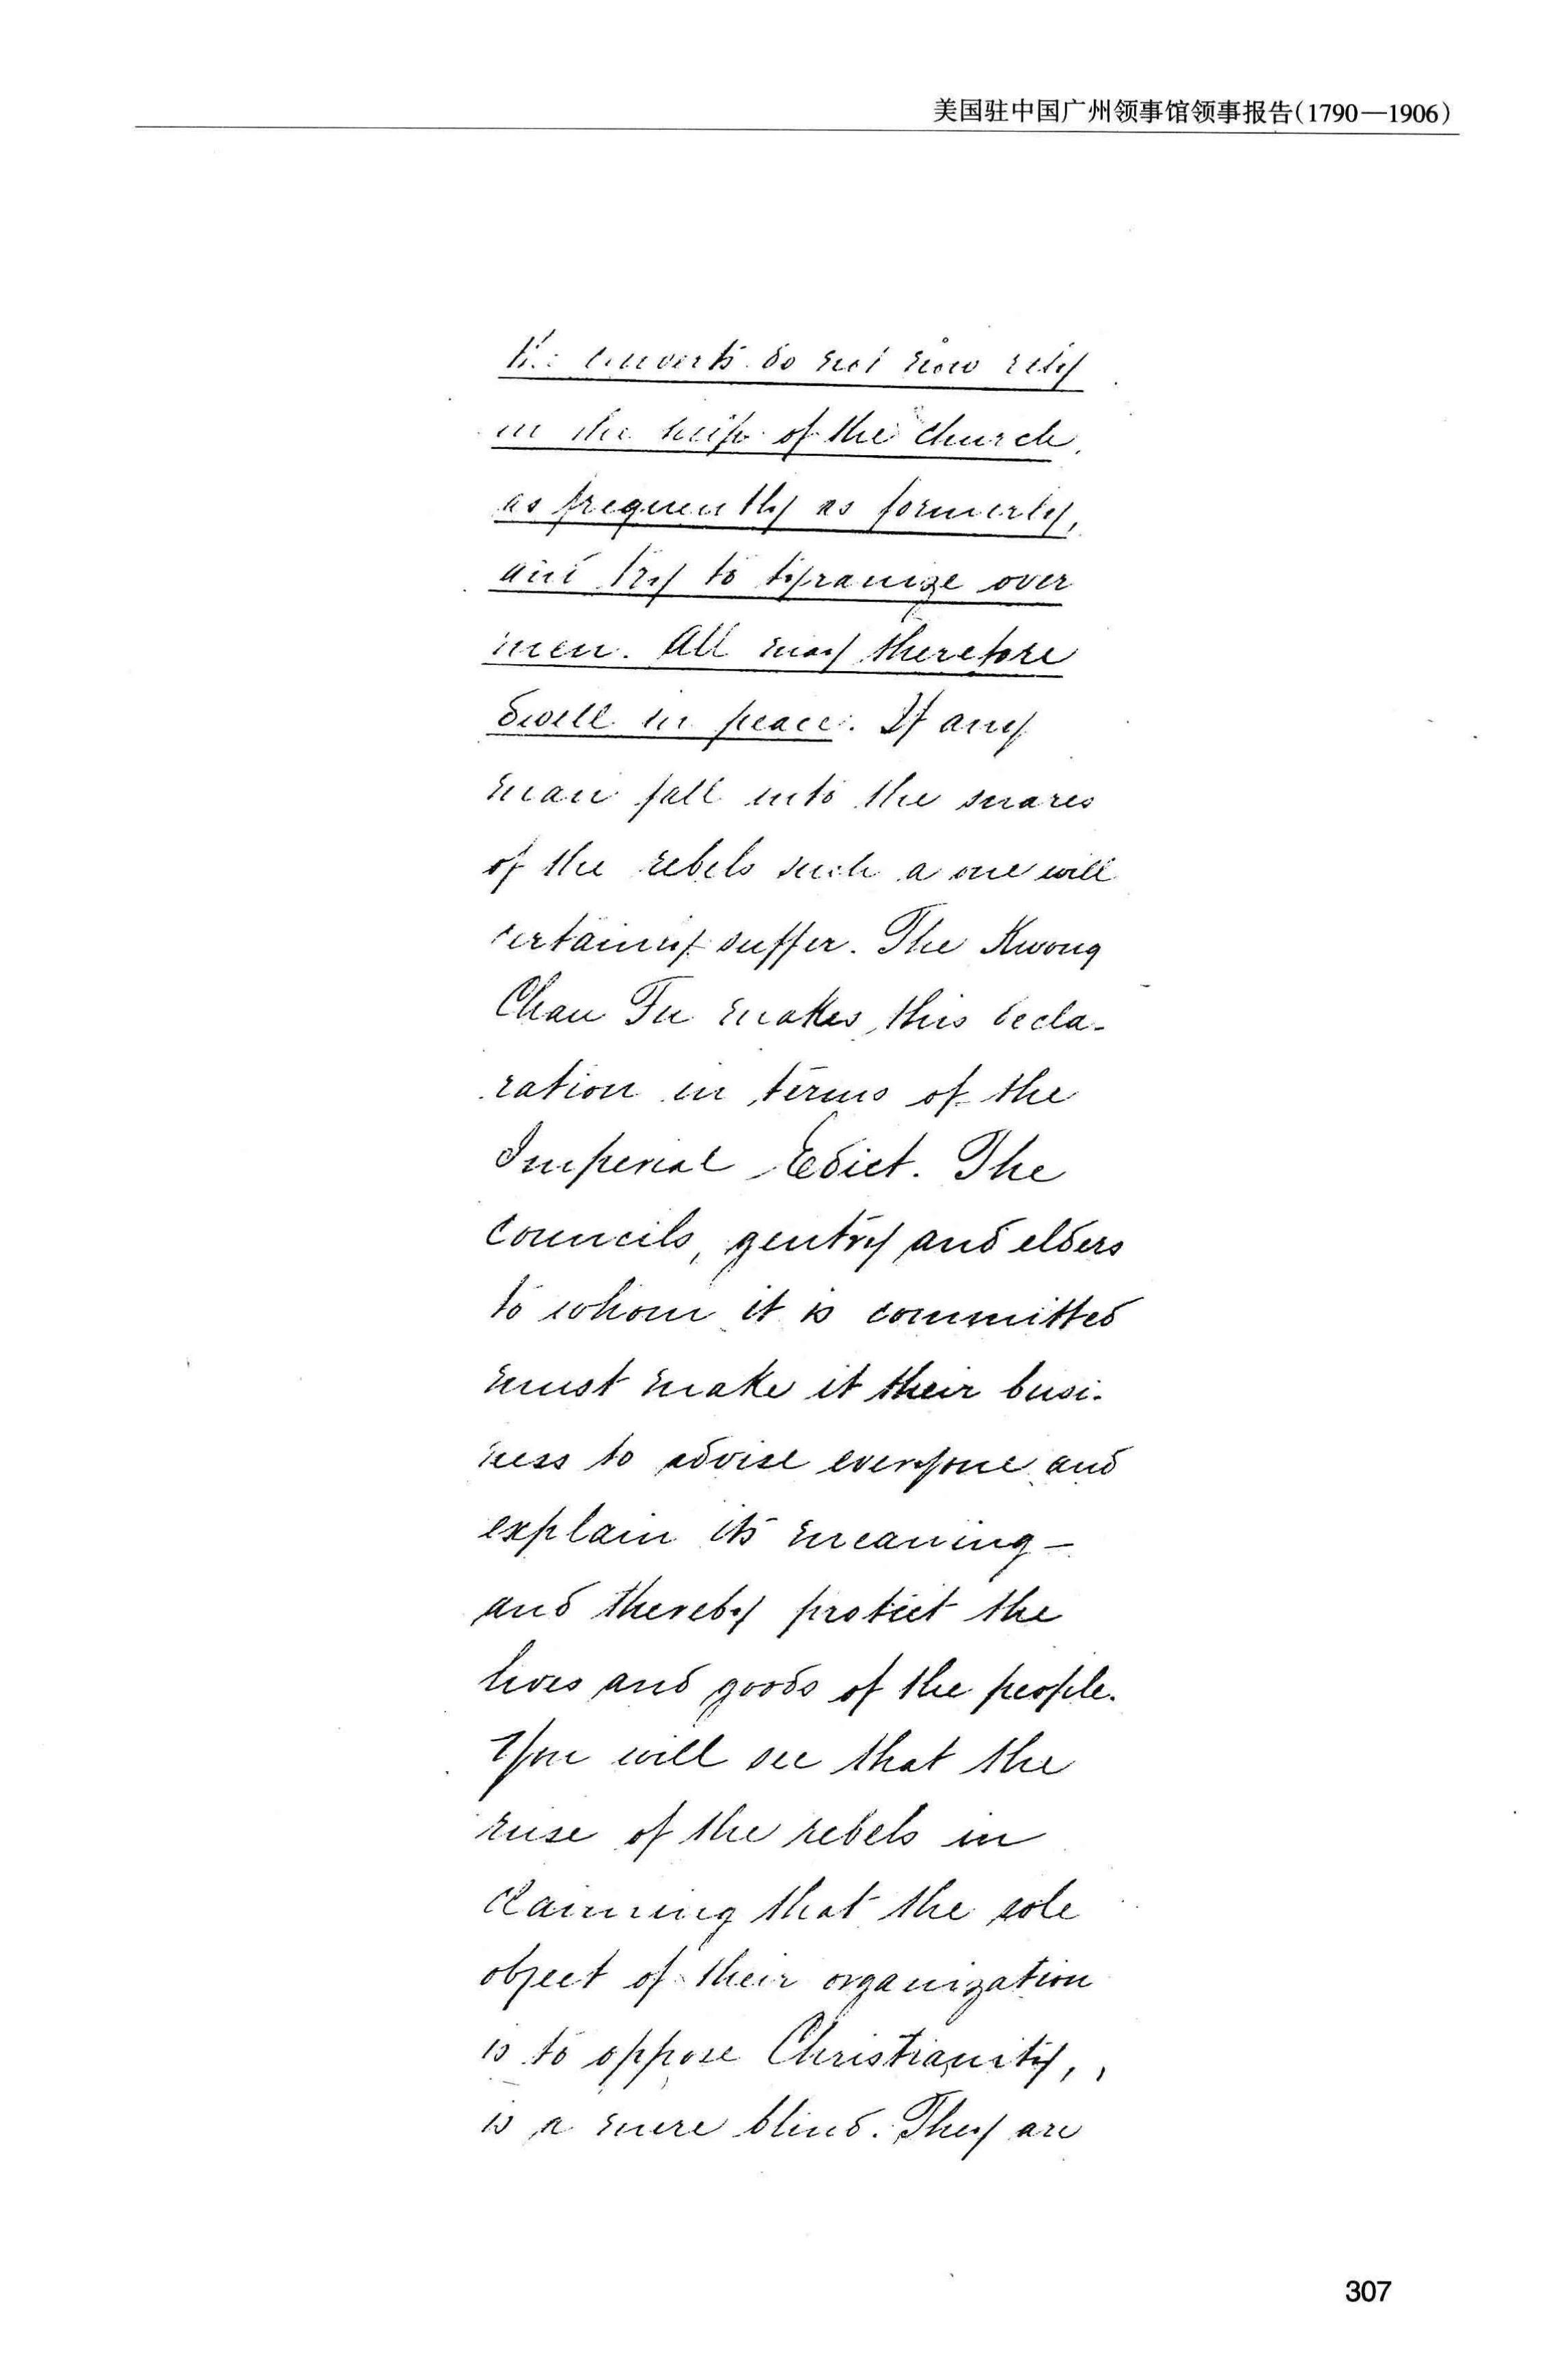 美国驻中国广州领事馆领事报告(1790—1906)
the converts do not now rely
in the help of the church,
as frequently as formerly,
and try to tyranize over
men. All may therefore
dwell in peace. If any
man fall into the snares
of the rebels such a one will
certainly suffer. The Kwong
Chau Fu makes this decla-
ration in terms of the
Imperial Edict. The
Councils, gentry and elders
to whom it is committed
must make it their busi-
ness to advise everyone and
explain its meaning —
and thereby protect the
lives and goods of the people.
You will see that the
ruse of the rebels in
claiming that the sole
object of their organization
is to oppose Christianity,
is a mere blind. They are
307